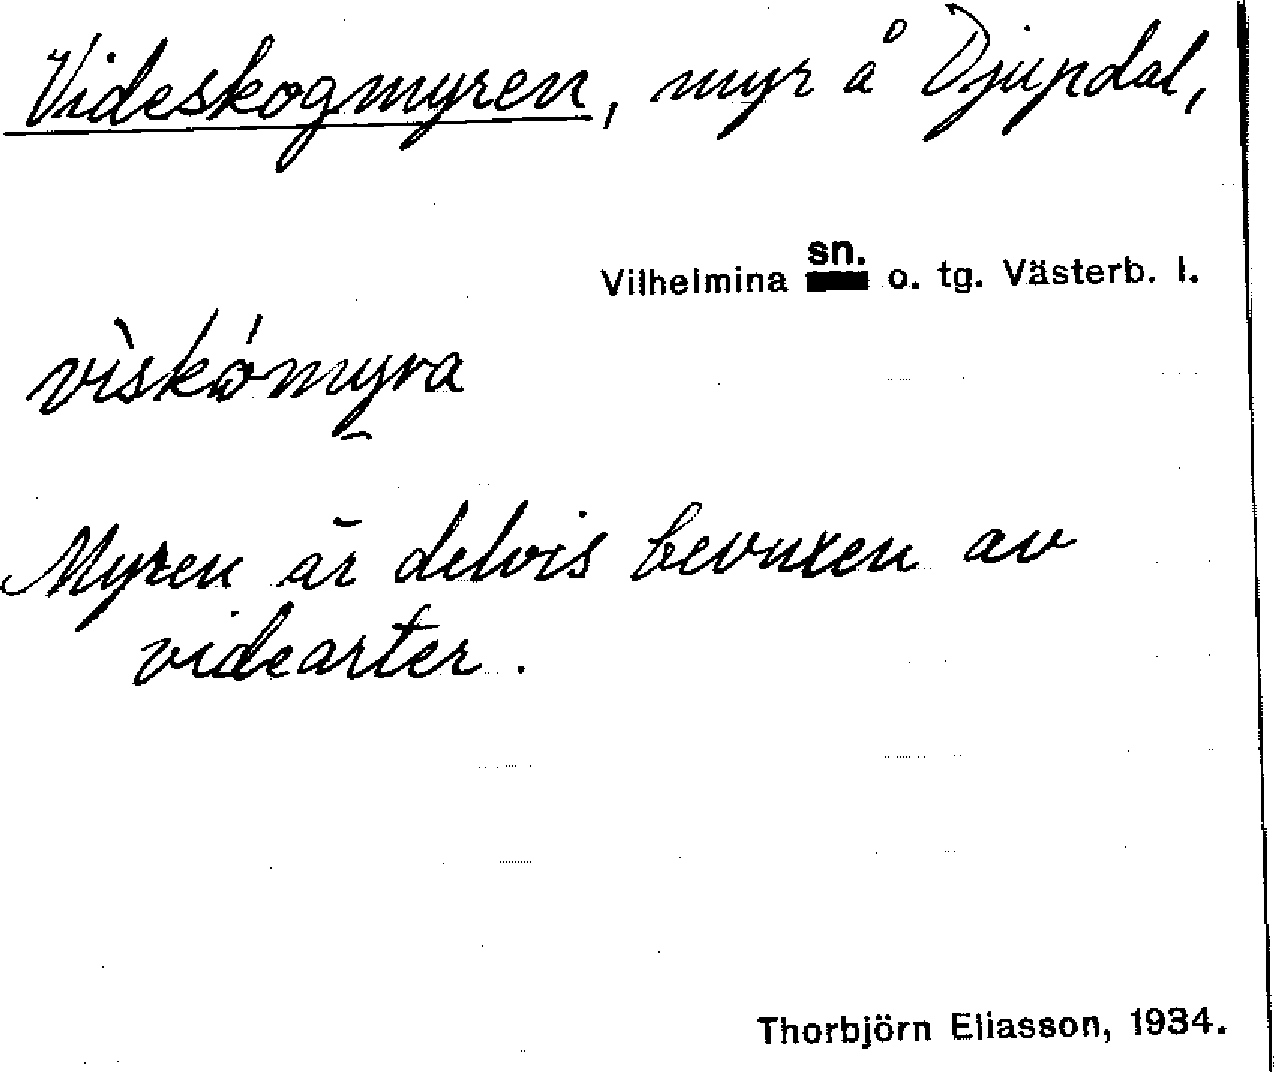 Videskogmyren, myr å Djupdal,
Vilhelmina sn. o. tg. Västerb. l.
vìskómyra
Myren är delvis bevuxen av
videarter.
Thorbjörn Eliasson, 1934.